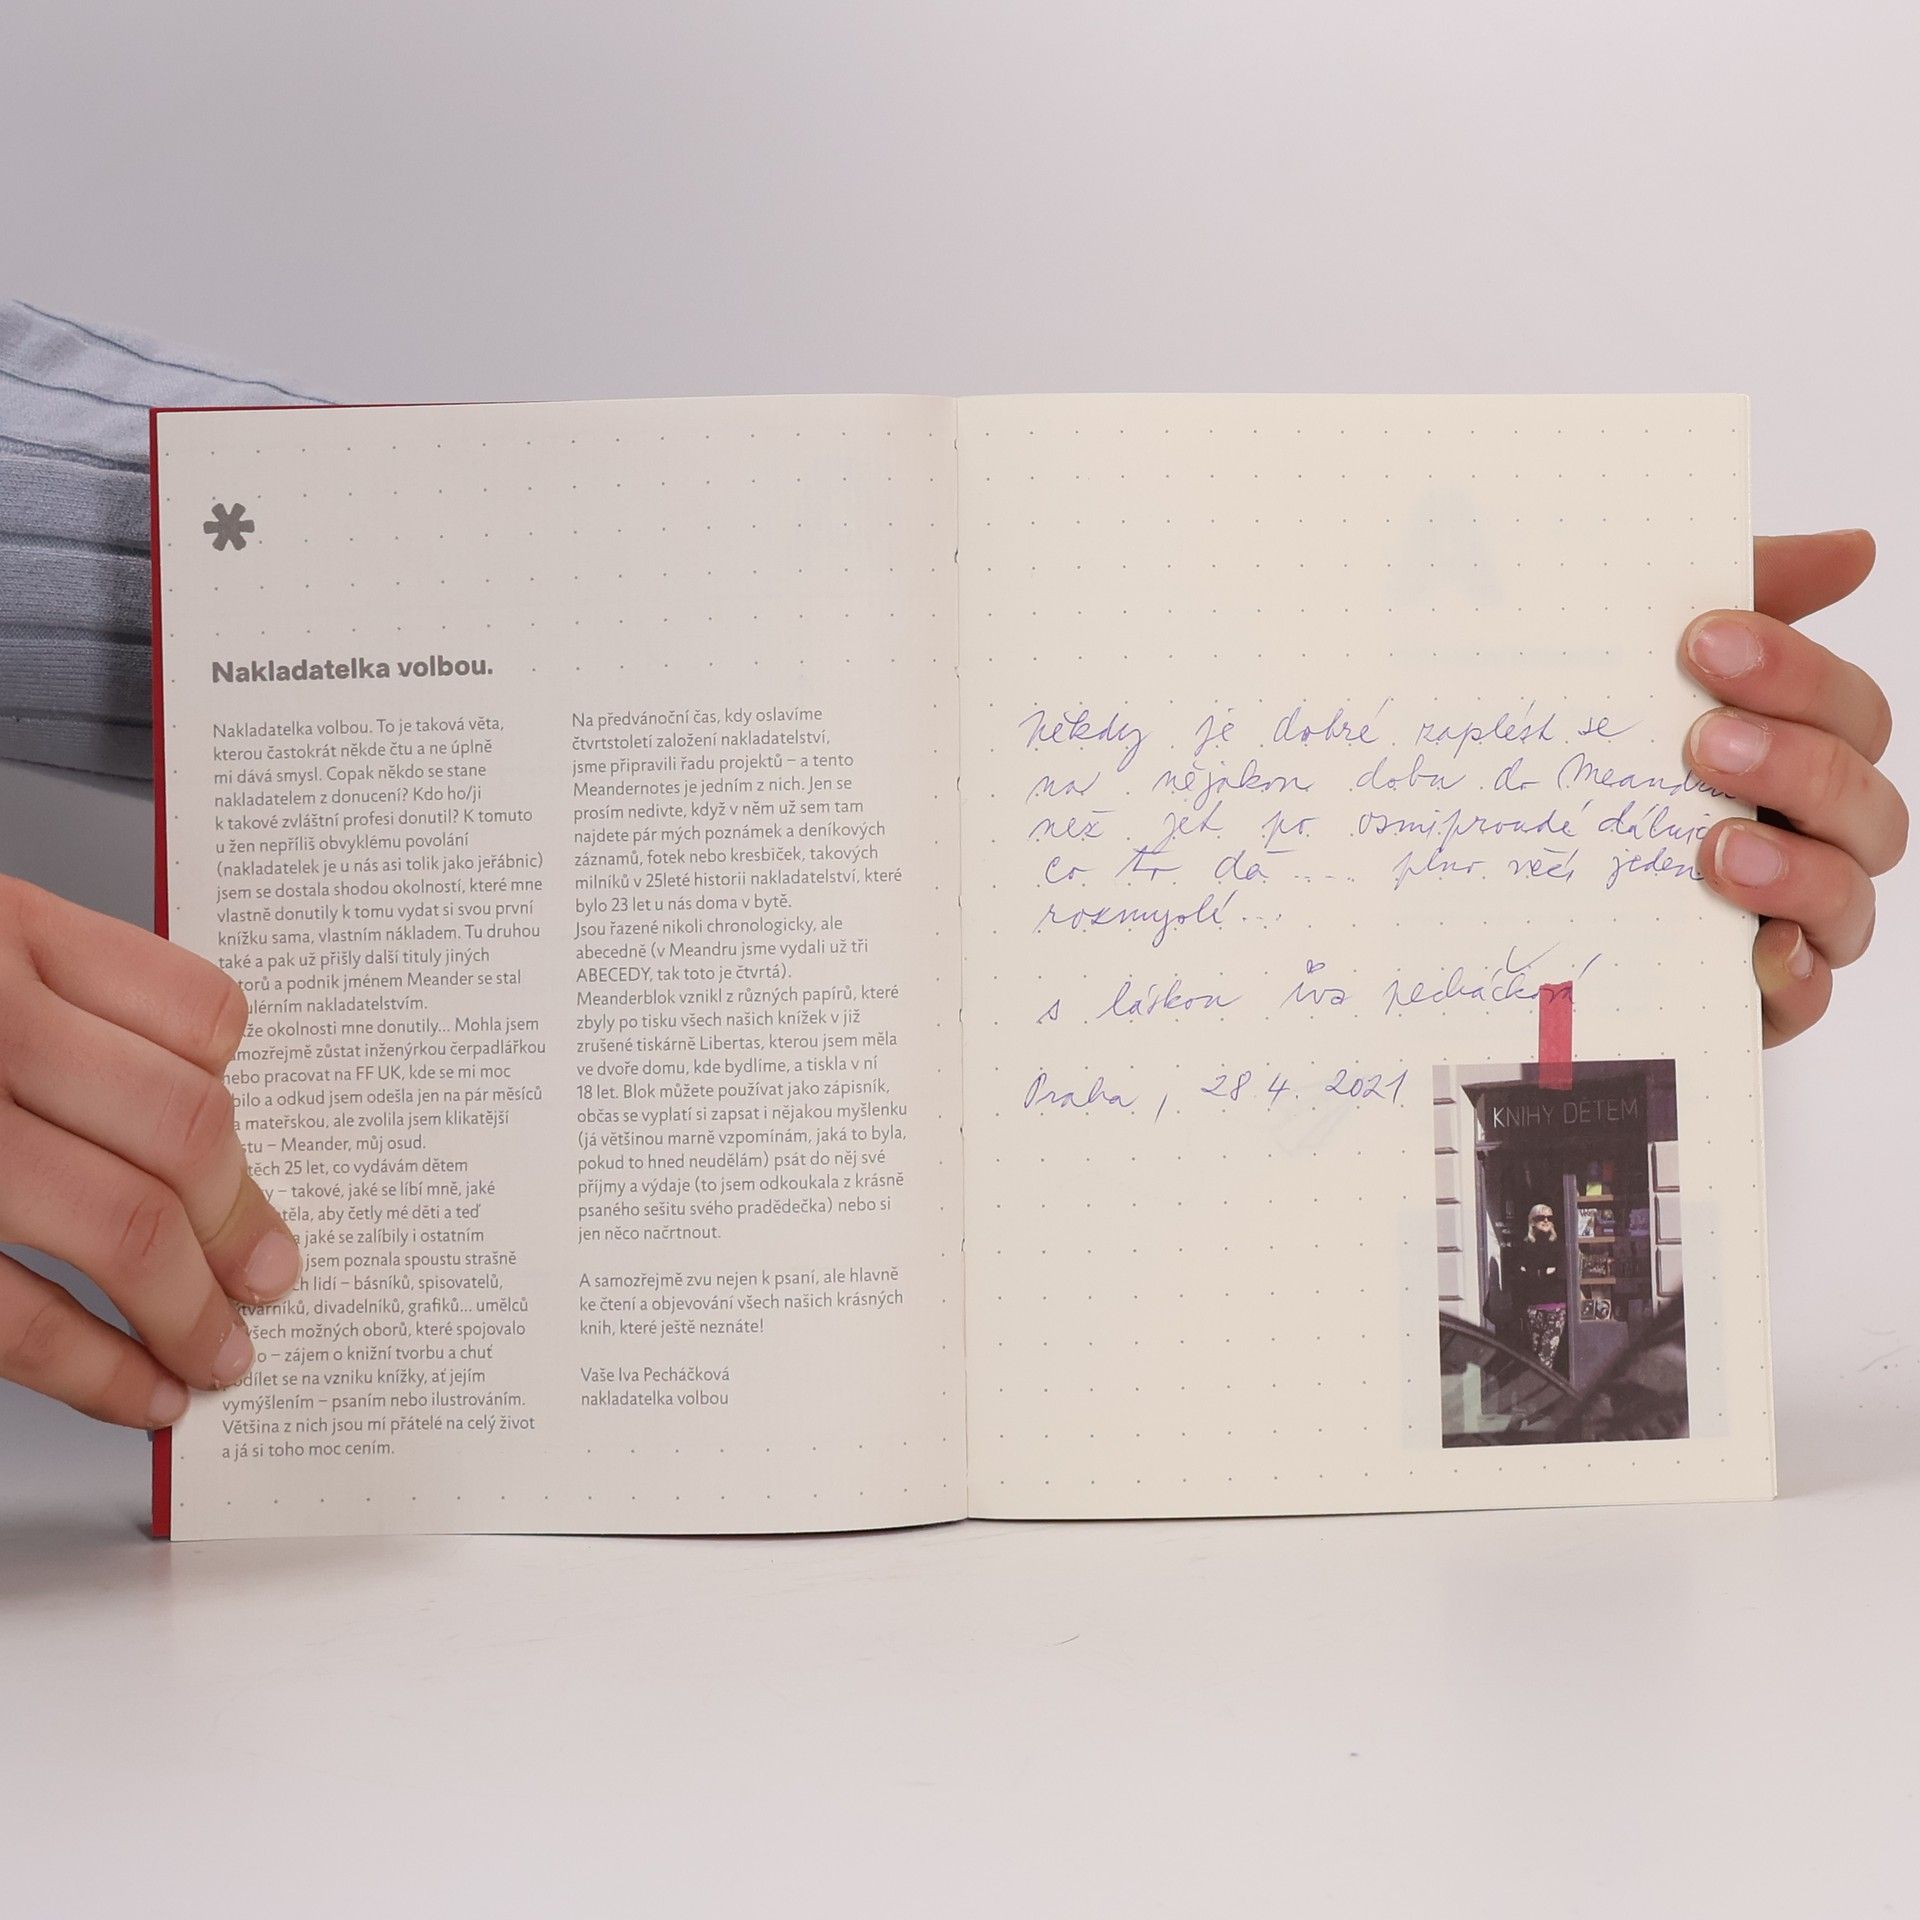 Nakladatelka volbou.
Nakladatelka volbou. To je taková věta,
kterou častokrát někde čtu a ne úplně
mi dává smysl. Copak někdo se stane
nakladatelem z donucení? Kdo ho/ji
k takové zvláštní profesi donutil? K tomuto
u žen nepříliš obvyklému povolání
(nakladatelek je u nás asi tolik jako jeřábnic)
jsem se dostala shodou okolností, které mne
vlastně donutily k tomu vydat si svou první
knížku sama, vlastním nákladem. Tu druhou
také a pak už přišly další tituly jiných
torů a podnik jménem Meander se stal
ulérním nakladatelstvím.
že okolnosti mne donutily... Mohla jsem
mozřejmě zůstat inženýrkou čerpadlářkou
nebo pracovat na FF UK, kde se mi moc
bilo a odkud jsem odešla jen na pár měsíců
a mateřskou, ale zvolila jsem klikatější
stu – Meander, můj osud.
těch 25 let, co vydávám dětem
y – takové, jaké se líbí mně, jaké
těla, aby četly mé děti a teď
a jaké se zalíbily i ostatním
jsem poznala spoustu strašně
ch lidí – básníků, spisovatelů,
tvarníků, divadelníků, grafiků... umělců
všech možných oborů, které spojovalo
o – zájem o knižní tvorbu a chuť
odílet se na vzniku knížky, ať jejím
vymýšlením – psaním nebo ilustrováním.
Většina z nich jsou mí přátelé na celý život
a já si toho moc cením.
Na předvánoční čas, kdy oslavíme
čtvrtstoletí založení nakladatelství,
jsme připravili řadu projektů – a tento
Meandernotes je jedním z nich. Jen se
prosím nedivte, když v něm už sem tam
najdete pár mých poznámek a deníkových
záznamů, fotek nebo kresbiček, takových
milníků v 25leté historii nakladatelství, které
bylo 23 let u nás doma v bytě.
Jsou řazené nikoli chronologicky, ale
abecedně (v Meandru jsme vydali už tři
ABECEDY, tak toto je čtvrtá).
Meanderblok vznikl z různých papírů, které
zbyly po tisku všech našich knížek v již
zrušené tiskárně Libertas, kterou jsem měla
ve dvoře domu, kde bydlíme, a tiskla v ní
18 let. Blok můžete používat jako zápisník,
občas se vyplatí si zapsat i nějakou myšlenku
(já většinou marně vzpomínám, jaká to byla,
pokud to hned neudělám) psát do něj své
příjmy a výdaje (to jsem odkoukala z krásně
psaného sešitu svého pradědečka) nebo si
jen něco načrtnout.
A samozřejmě zvu nejen k psaní, ale hlavně
ke čtení a objevování všech našich krásných
knih, které ještě neznáte!
Vaše Iva Pecháčková
nakladatelka volbou
Někdy je dobré zaplést se
na nějakou dobu do Meandru
než jet po osmiproudé dálnic
co to dá .... plno věcí jeden
rozmyslí...
s láskou Iva pecháčková
Praha, 28.4. 2021
KNIHY DĚTEM